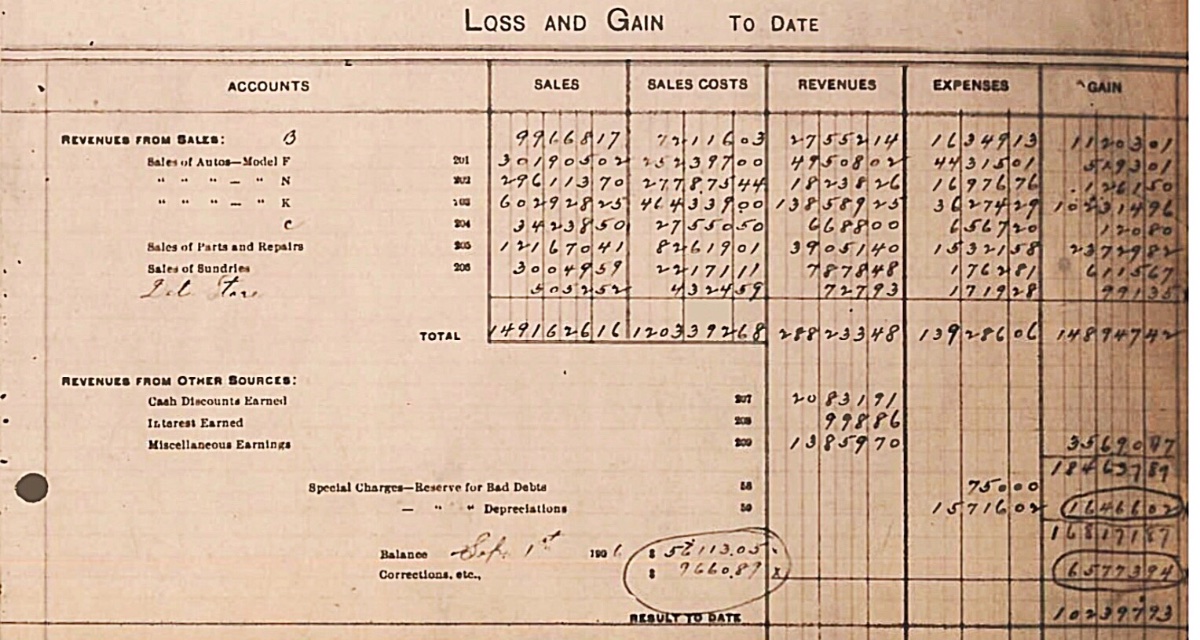 LOSS AND GAIN TO DATE
ACCOUNTS SALES SALES COSTS REVENUES EXPENSES GAIN
REVENUES FROM SALES: B 9966817 7211603 2755214 1634913 1120301
Sales of Autos—Model F 201 30190502 25239700 4950802 4431501 519301
" " " — " N 202 29611370 27787544 1823826 1697676 126150
" " " — " K 203 60292825 46433900 13858925 3627429 10231496
C 204 3423850 2755050 668800 656720 12080
Sales of Parts and Repairs 205 12167041 8261901 3905140 1532158 2372982
Sales of Sundries 206 3004959 2217111 787848 176281 611567
Det. Store 505252 432459 72793 171928 99135
TOTAL 149162616 120339268 28823348 13928606 14894742
REVENUES FROM OTHER SOURCES:
Cash Discounts Earned 207 2083191
Interest Earned 208 99886
Miscellaneous Earnings 209 1385970 3569047
18463789
Special Charges—Reserve for Bad Debts 58 75000
— " " Depreciations 59 1571602 1646602
16817187
Balance Sep. 1st 1906 $ 56113.05
Corrections, etc., $ 9660.89 6577394
RESULT TO DATE 10239793